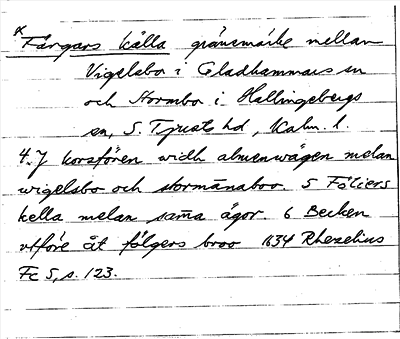 x Färgars källa gränsmärke mellan
Vigelsbo i Gladhammars sn
och Stormbo i Hallingebergs
sn, S. Tjusts hd, Kalm. l.
4. J korsfören widh almenwägen melan
wigelsbo och stormänaboo. 5 Föliers
kella melan sam̄a ägor. 6 Becken
vtföre åt fölgers broo 1634 Rhezelius
Fc 5, s. 123.